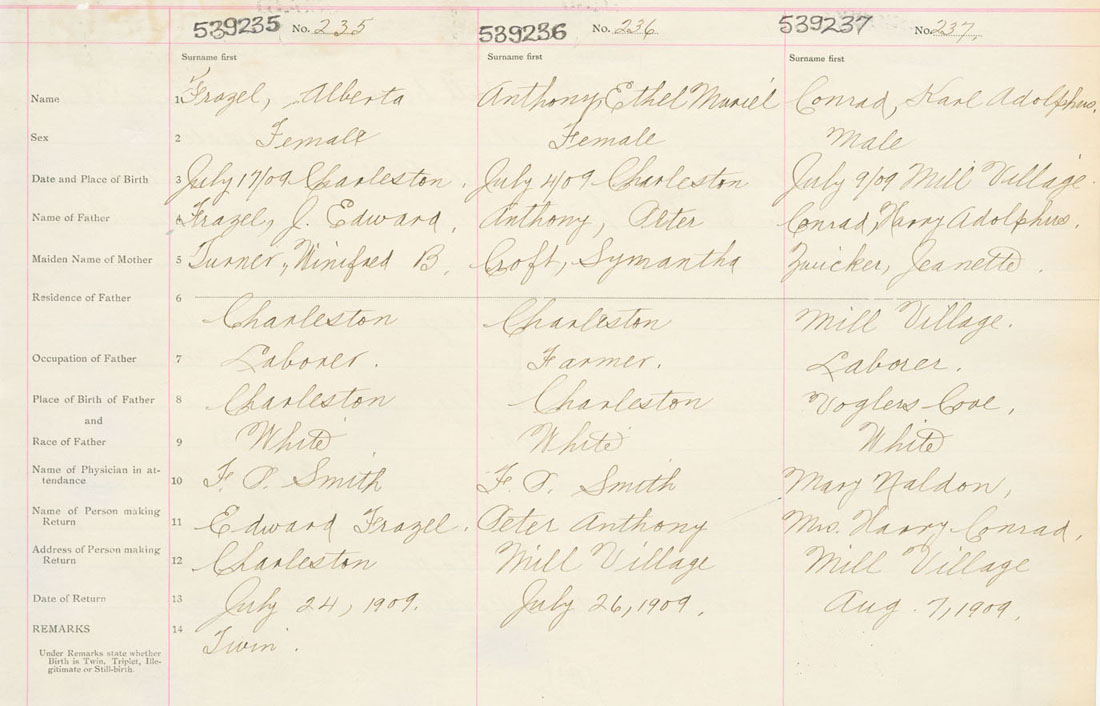 539235 No. 235 539236 No. 236 539237 No. 237.
Surname first Surname first Surname first
Name 1 Frazel, Alberta Anthony, Ethel Muriel Conrad, Karl Adolphus.
Sex 2 Female Female Male
Date and Place of Birth 3 July 17/09 Charleston. July 4/09 Charleston July 9/09 Mill Village.
Name of Father 4 Frazel, J. Edward, Anthony, Peter Conrad, Harry Adolphus.
Maiden Name of Mother 5 Turner, Winifred B. Croft, Symantha Zwicker, Jeanette.
Residence of Father 6
Charleston Charleston Mill Village.
Occupation of Father 7 Laborer. Farmer. Laborer.
Place of Birth of Father 8 Charleston Charleston Voglers Cove,
and
Race of Father 9 White White White
Name of Physician in at-
tendance 10 F. P. Smith F. P. Smith Mary Naldon,
Name of Person making
Return 11 Edward Frazel. Peter Anthony Mrs. Harry Conrad,
Address of Person making
Return 12 Charleston Mill Village Mill Village
Date of Return 13 July 24, 1909. July 26, 1909. Aug. 7, 1909.
REMARKS 14 Twin.
Under Remarks state whether
Birth is Twin, Triplet, Ille-
gitimate or Still-birth.